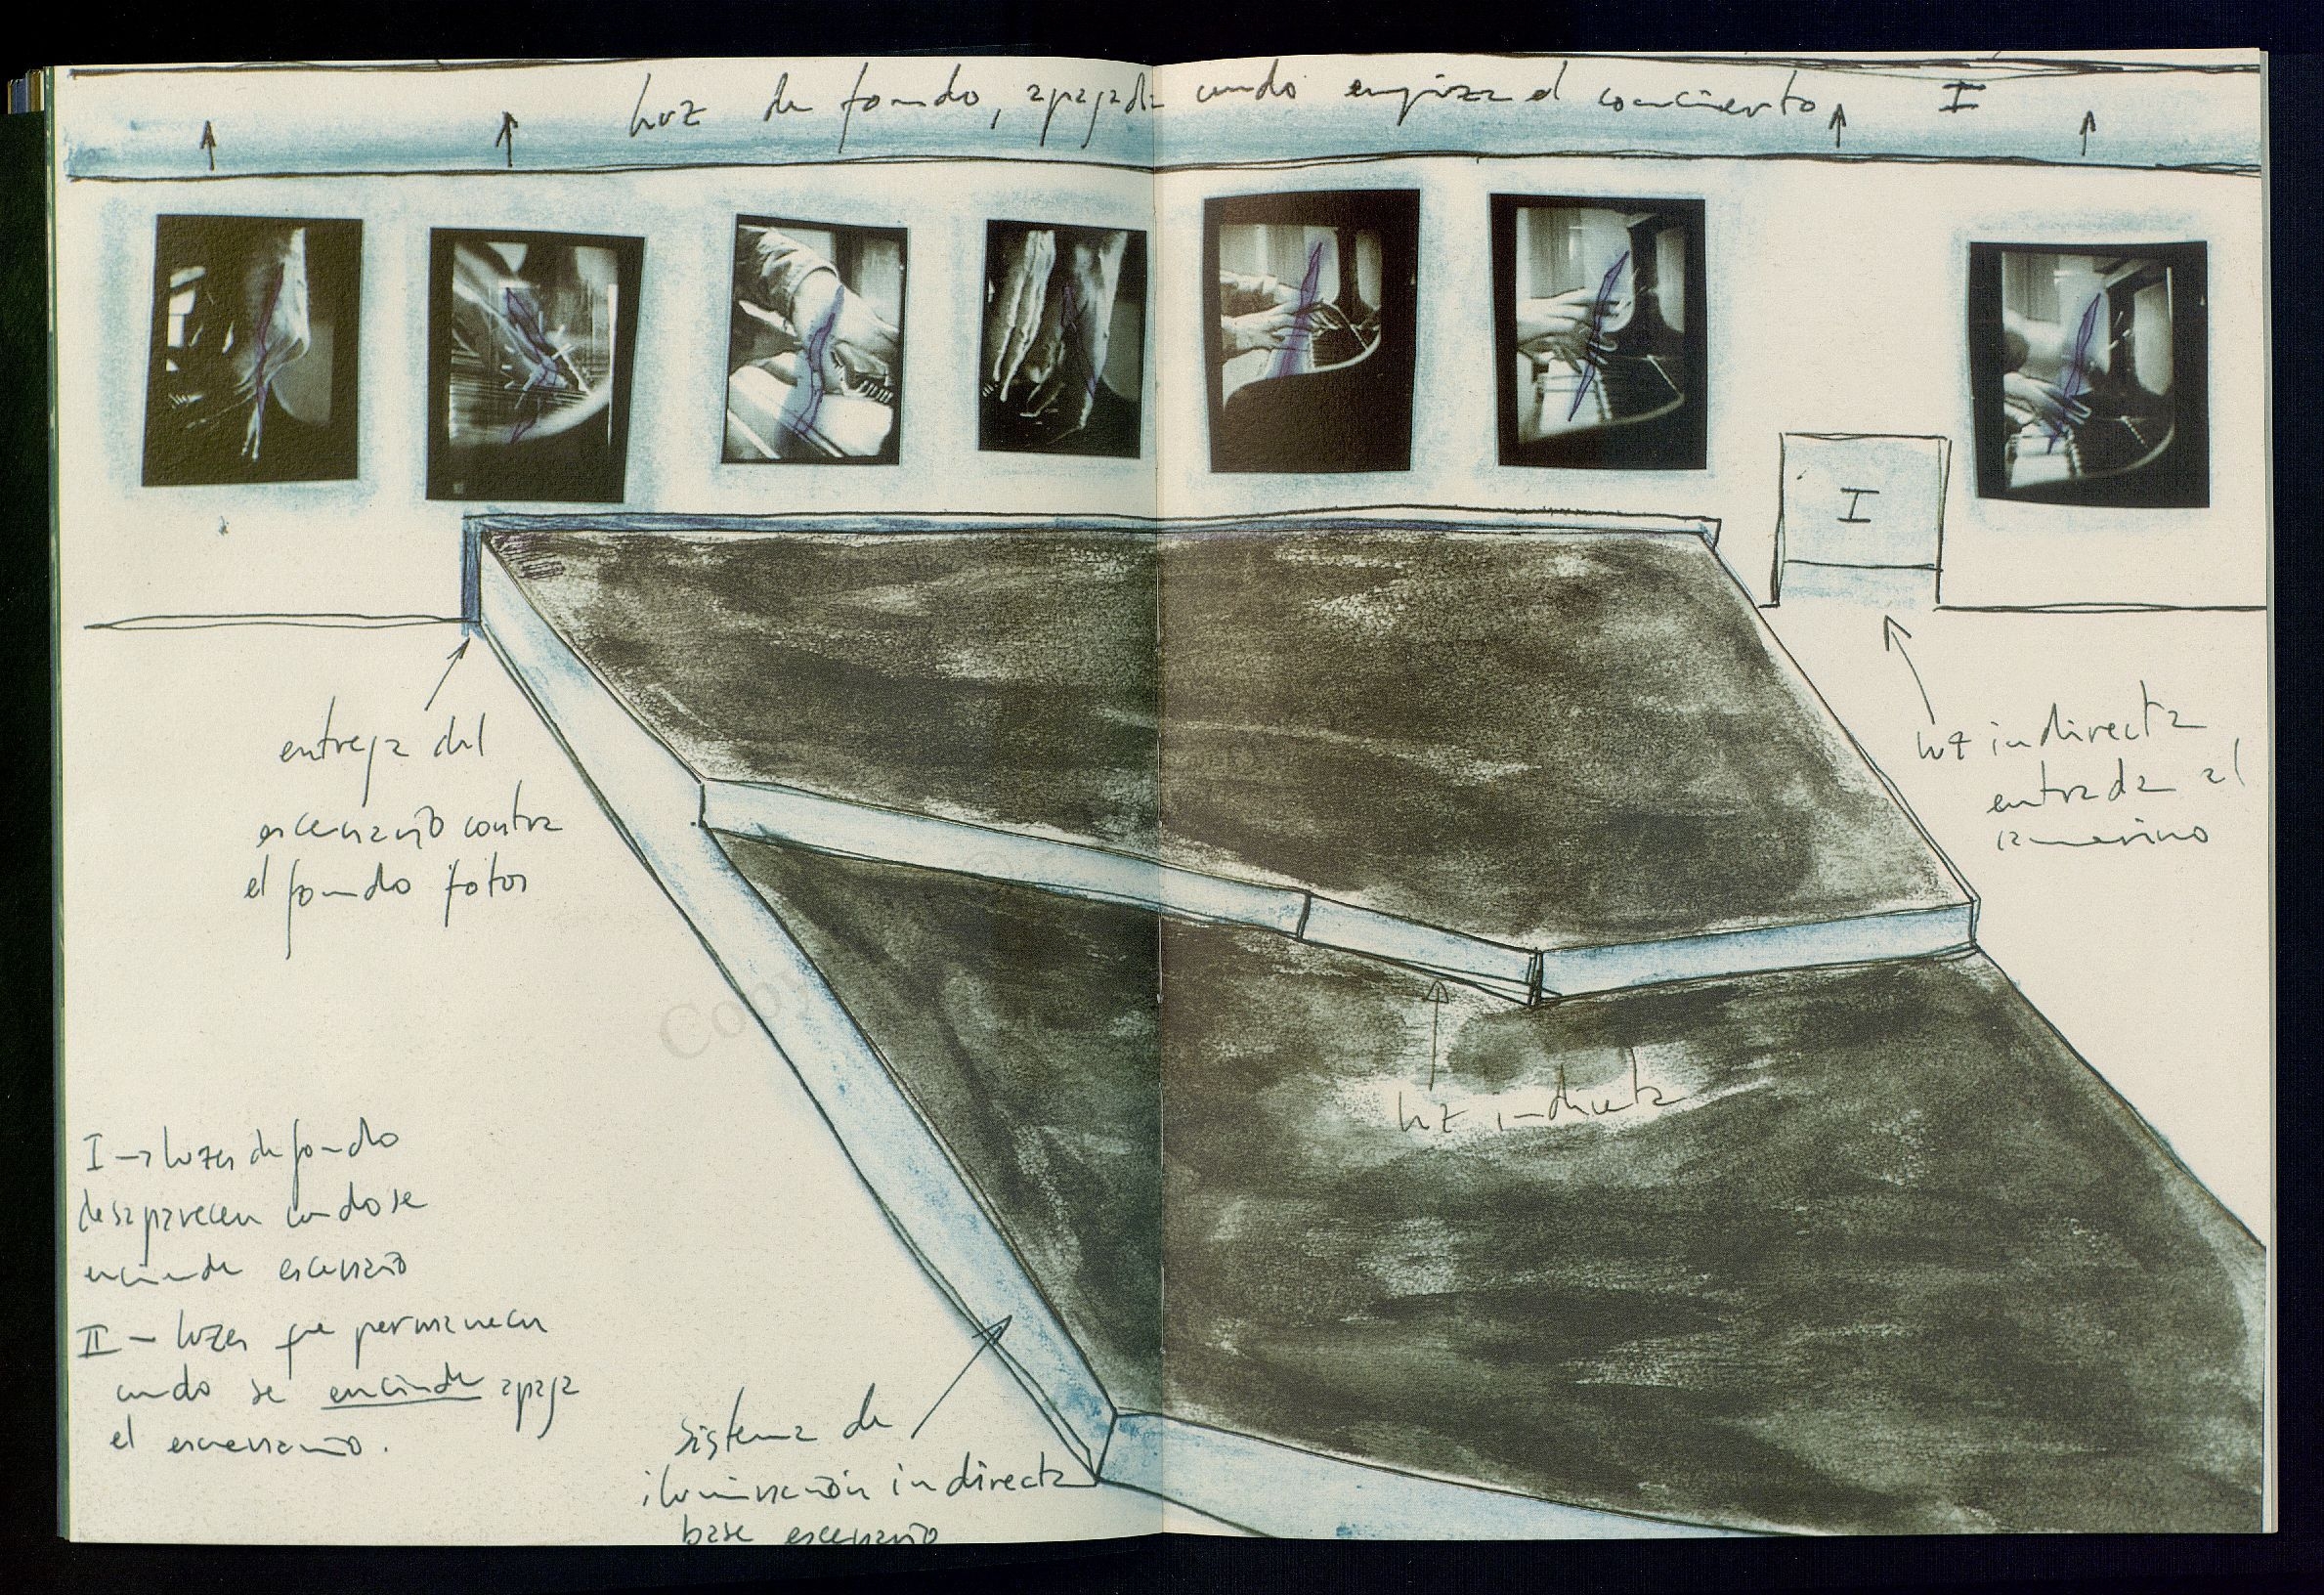 luz de fondo, apagada cuando empieza el concierto I
I
entrega del
escenario contra
el fondo fotos
luz indirecta
entrada al
camerino
luz indirecta
I → luces de fondo
desaparecen cuando se
enciende escenario
II – luces que permanecen
cuando se enciende apaga
el escenario.
sistema de
iluminación indirecta
base escenario